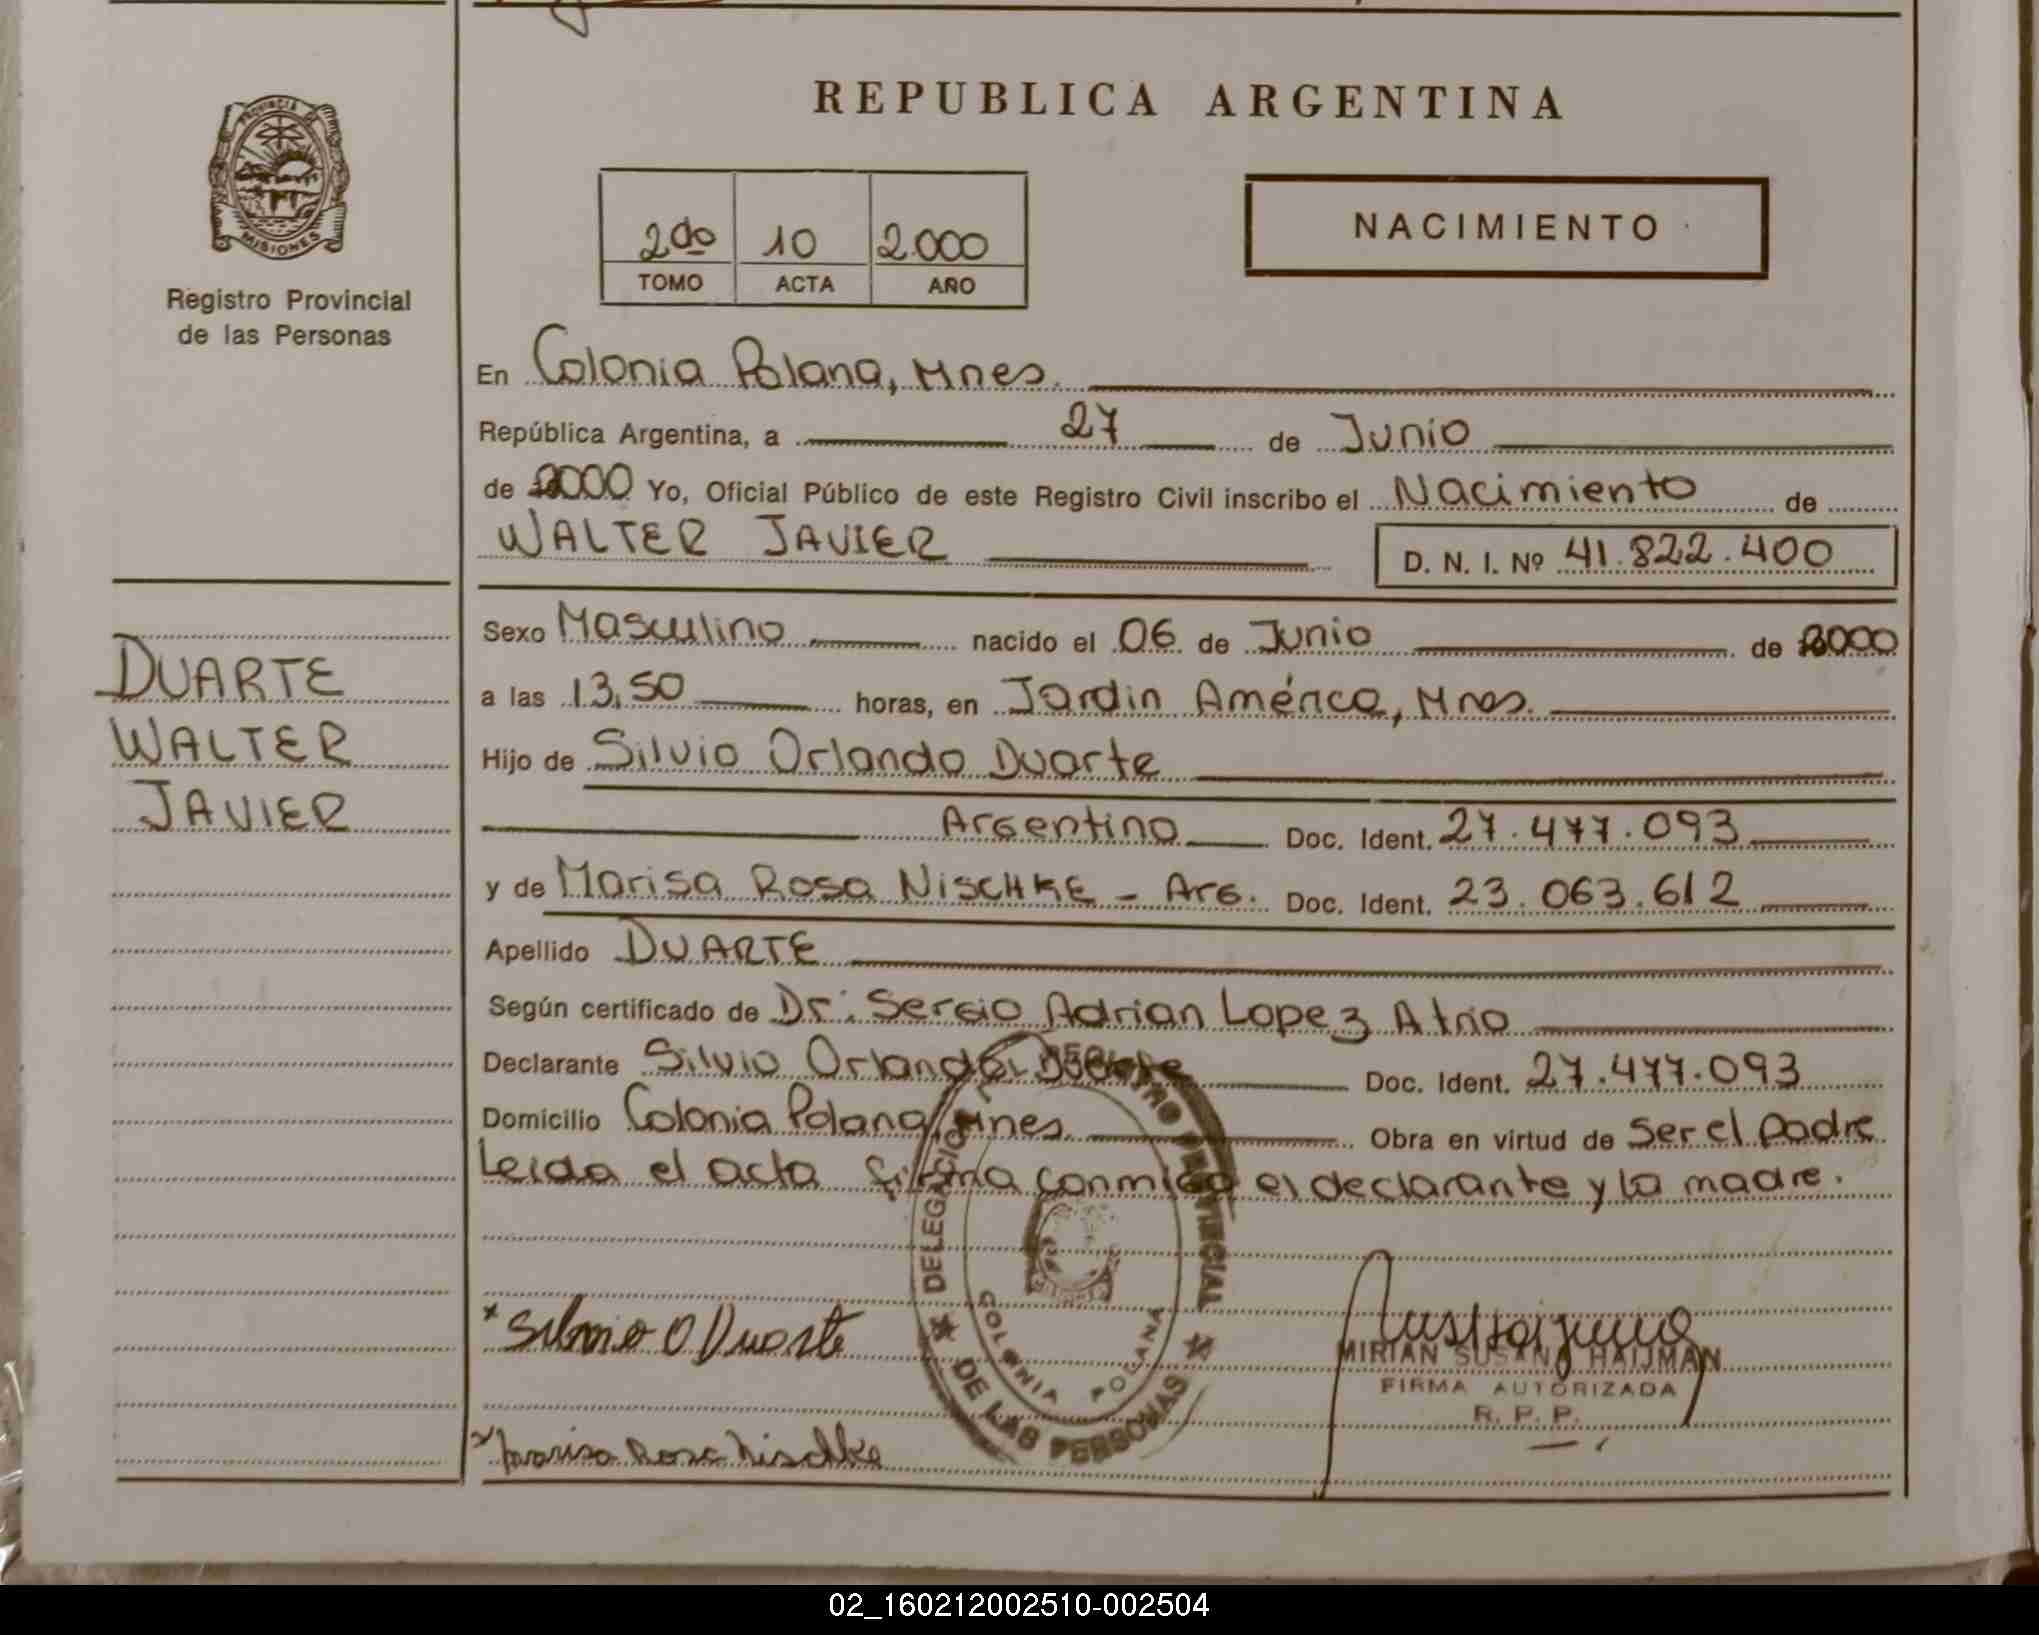 REPUBLICA ARGENTINA
PROVINCIA DE
MISIONES
Registro Provincial
de las Personas
2do 10 2.000
TOMO ACTA AÑO
NACIMIENTO
En Colonia Polana, Mnes.
República Argentina, a 27 de Junio
de 2000 Yo, Oficial Público de este Registro Civil inscribo el Nacimiento de
WALTER JAVIER D. N. I. Nº 41.822.400
DUARTE
WALTER
JAVIER
Sexo Masculino nacido el 06 de Junio de 2000
a las 13,50 horas, en Jardin América, Mnes.
Hijo de Silvio Orlando Duarte
Argentino Doc. Ident. 27.477.093
y de Marisa Rosa NISCHKE - Arg. Doc. Ident. 23.063.612
Apellido DUARTE
Según certificado de Dr: Sergio Adrian Lopez Atrio
Declarante Silvio Orlando Duarte Doc. Ident. 27.477.093
Domicilio Colonia Polana, Mnes Obra en virtud de Ser el padre
Leida el acta firma conmigo el declarante y la madre.
DELEGACION REGISTRO PROVINCIAL
DE LAS PERSONAS
COLONIA POLANA
Silvio O Duarte
MIRIAN SUSANA HAIJMAN
FIRMA AUTORIZADA
R. P. P.
Marisa Rosa Nischke
02_160212002510-002504